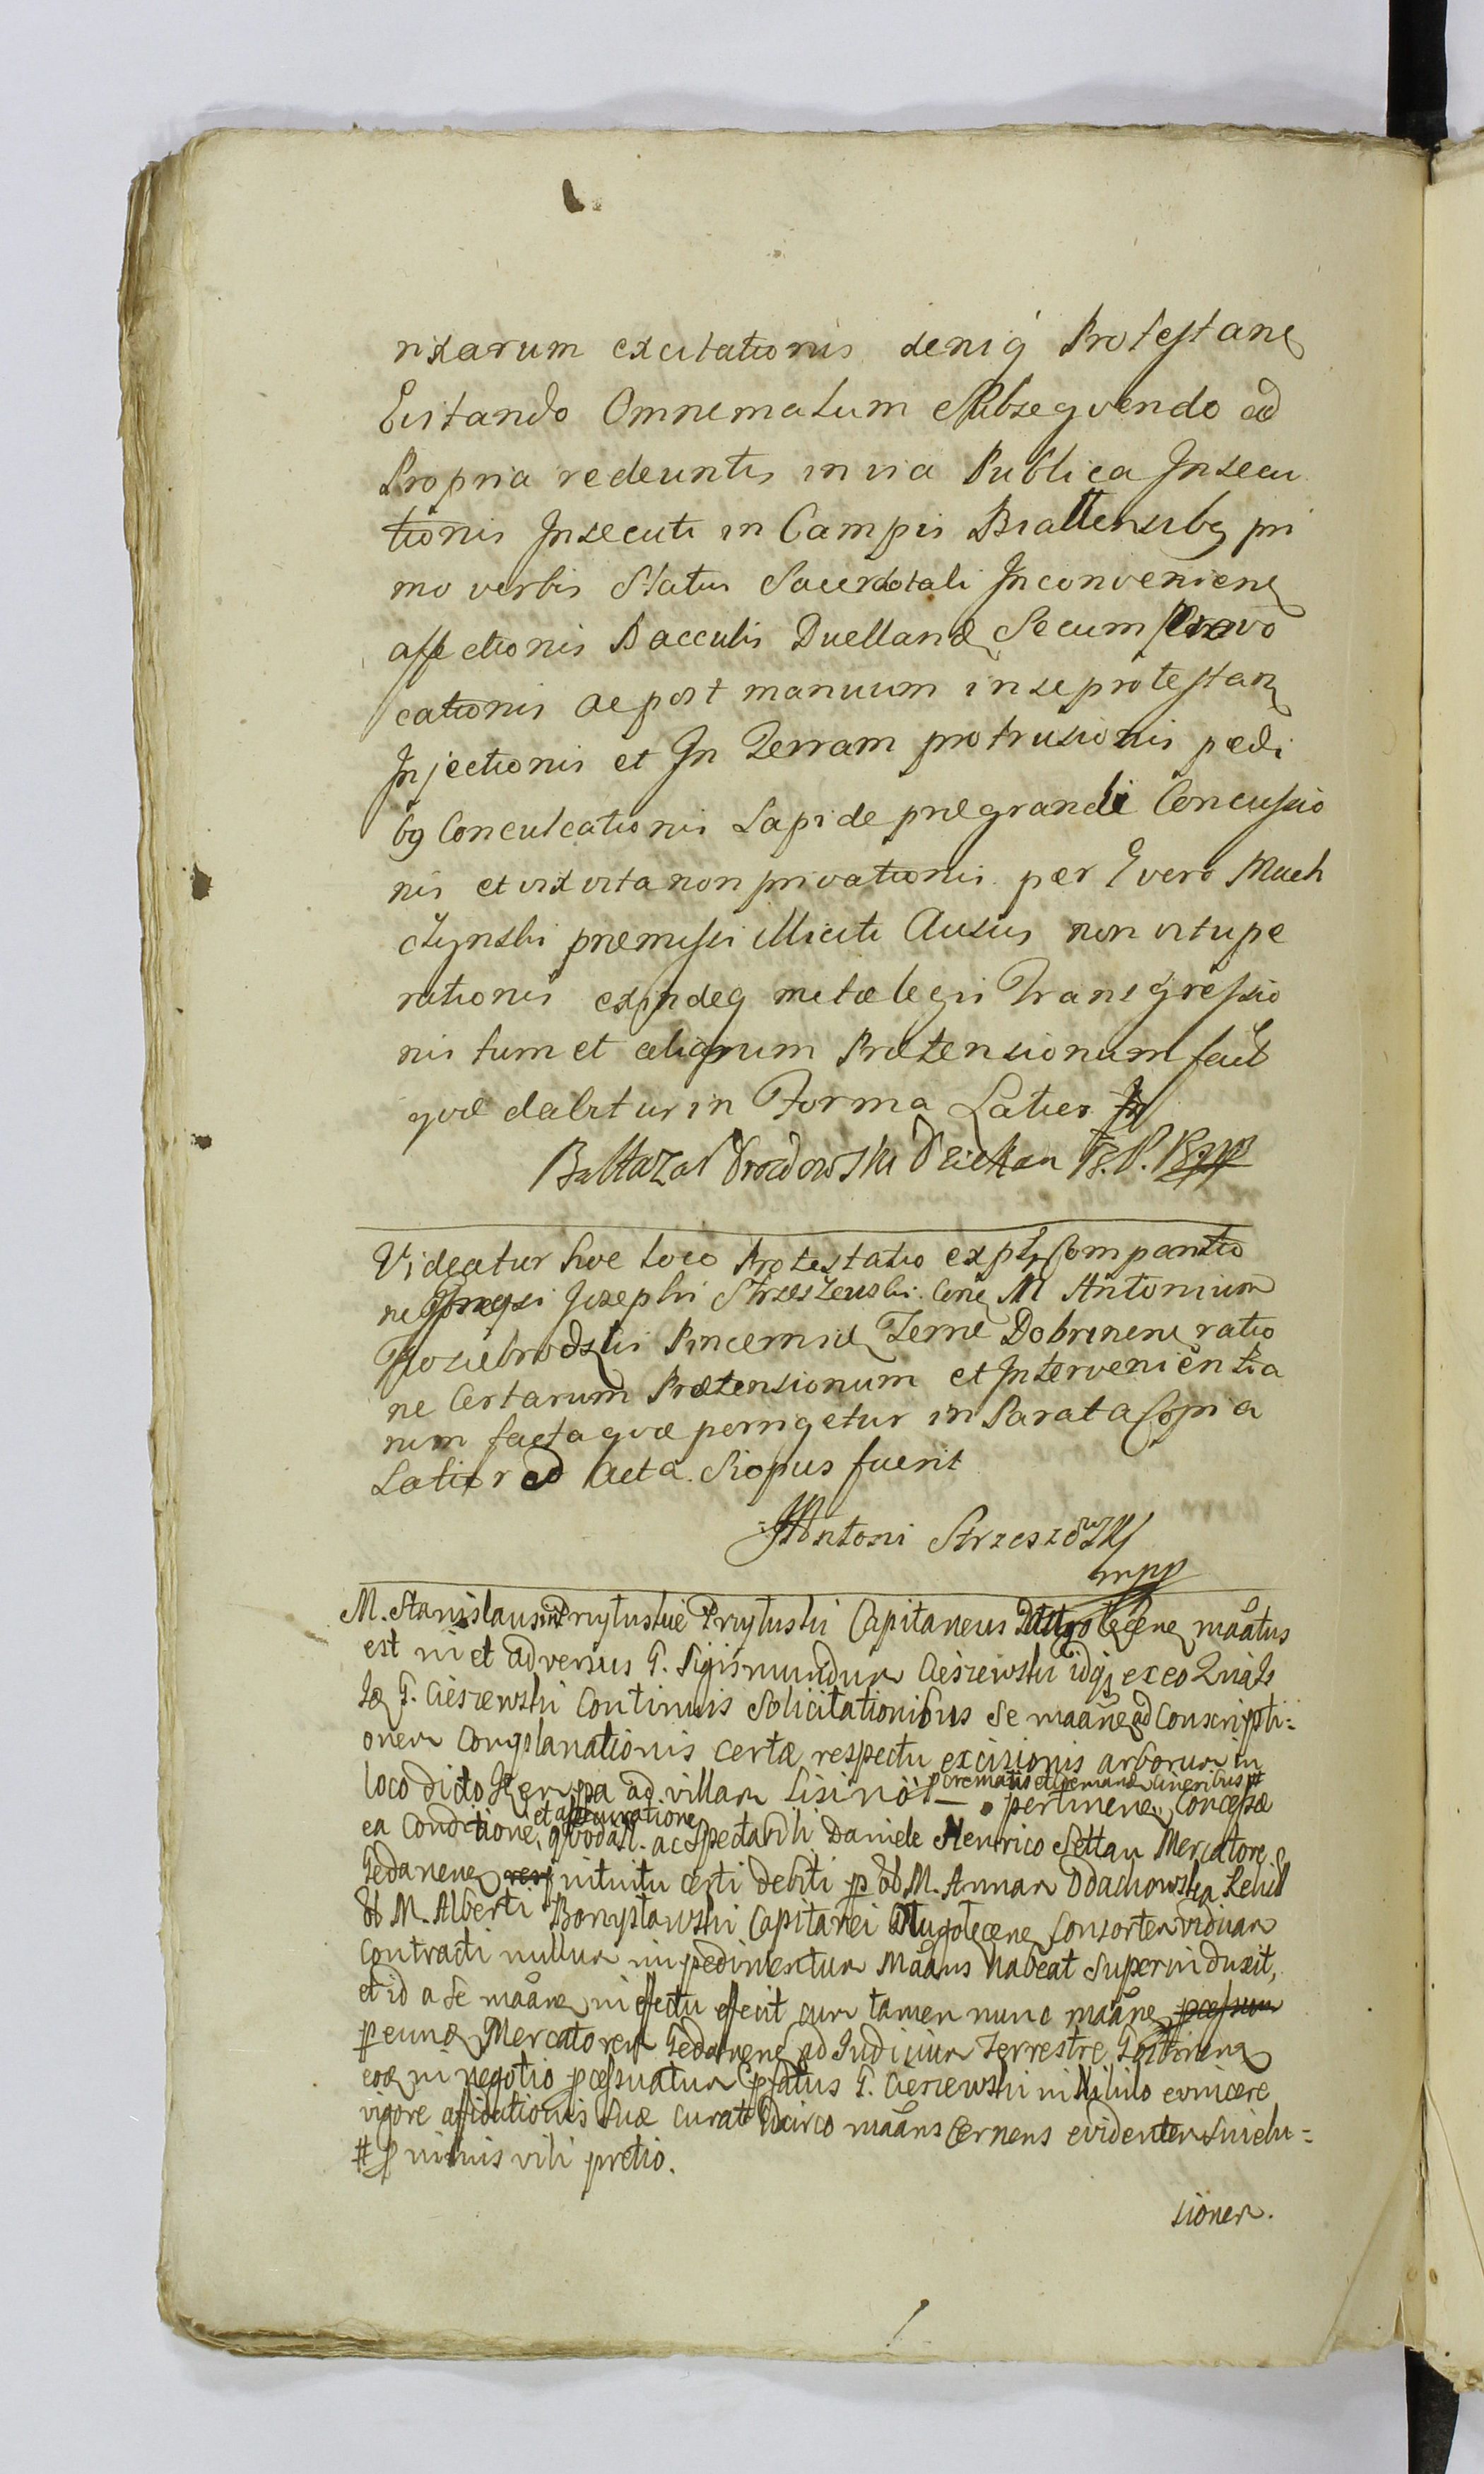 nixarum excitationis deniq Protestane
Evitando Omnemalum Subseqvendo ad
Propria redeuntis in via Publica Insecu
tionis Insecuti in Campis Bialtensibq pri
mo verbis Status Sacerdotali Inconveniene
affectionis Bacculis Duelland Secum Provo
cationis ac post manuum in se protestan
Injectionis et In Terram protrusionis pedi
bq Conculcationis Lapide prægrandi Concussio
nis et vix vita non privationis per G vero Mach
czynski præmissi illiciti Ausus non vitupe
rationis exindeq metæ legis Transgressio
nis tum et aliarum Prætensionum fact
qvæ dabitur in Forma Latior
Baltazar Drozdowski Dziekan
Videatur hoc loco Protestatio expte Compantio
ne Josephi Strzeszewski Cone M Antonium
Kosiebrodzki Pincernid Terræ Dobrinene ratio
ne Certarum Prætensionum et Intervenientia
rum facta qvæ porrigetur in Parata Copia
Latior ad Acta. Siopus fuerit
Antoni Strzeszewski
mpp
M. Stanislaus in Pryłuskie Pryłuski Capitaneus Długołęcene maatus
est in et adversus G. Sigismundum Cieszewski idq ex eo Quia Is
Id G. Cieszewski Continuis Solicitationibus se maane ad Conscripti=
onem Complanationis certæ respectu excisionis arborum in
loco dicto Szerpa ad villam Lisino crematis et cineribus #
pertinene, Concessæ
ea Conditione, et assecuratione qvod a N. ac Spectabili Daniele Henrico Settau Mercatore
Gedanene intuitu certi debiti p ob M. Annam Odachowska Relict
ob M. Alberti Bonysławski Capitanei Długołęcene Consortem viduam
Contracti nullum impedimentum Maans habeat Superinduxit,
et id a se maane in effectu effecit cum tamen nunc maane
p eund Mercatorem Gedanene ad Judicium Terrestre Gostinene
eod in negotio pcessuatur Epfatus G. Cieszewski in Nihilo evincere
vigore affidationis Suæ curat Idcirco maans Cernens evidentem Sui elu=
# p nimis vili pretio.
sionem.